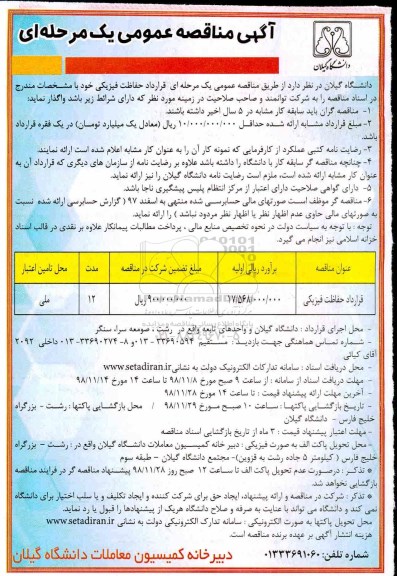 آگهی مناقصه عمومی یک مرحله‌ای
دانشگاه گیلان
دانشگاه گیلان در نظر دارد از طریق مناقصه عمومی یک مرحله ای قرارداد حفاظت فیزیکی خود با مشخصات مندرج
در اسناد مناقصه را به شرکت توانمند و صاحب صلاحیت در زمینه مورد نظر که دارای شرائط زیر باشد واگذار نماید:
۱- مناقصه گران باید سابقه کار مشابه در ۵ سال اخیر داشته باشند.
۲- مبلغ قرارداد مشابه ارائه شده حداقل ۱۰/۰۰۰/۰۰۰/۰۰۰ ریال (معادل یک میلیارد تومان) در یک فقره قرارداد
باشد.
۳- رضایت نامه کتبی عملکرد از کارفرمایی که نمونه کار آن را به عنوان کار مشابه اعلام شده است ارائه نمایند.
۴- چنانچه مناقصه گر سابقه کار با دانشگاه را داشته باشد علاوه بر رضایت نامه از سازمان های دیگری که قرارداد آن به
عنوان کار مشابه ارائه شده است، ملزم است رضایت نامه دانشگاه گیلان را نیز ارائه نماید.
۵- دارای گواهی صلاحیت دارای اعتبار از مرکز انتظام پلیس پیشگیری ناجا باشد.
۶- مناقصه گر موظف است صورتهای مالی حسابرسی شده منتهی به اسفند ۹۷ ( گزارش حسابرسی ارائه شده نسبت
به صورتهای مالی حاوی عدم اظهار نظر یا اظهار نظر مردود نباشد ) را ارائه نماید.
توجه : با توجه به سیاست دولت در نحوه تخصیص منابع مالی ، پرداخت مطالبات پیمانکار علاوه بر نقدی در قالب اسناد
خزانه اسلامی نیز انجام می گیرد.
عنوان مناقصه برآورد ریالی اولیه مبلغ تضمین شرکت در مناقصه مدت محل تامین اعتبار
قرارداد حفاظت فیزیکی ۱۷/۵۶۸/۰۰۰/۰۰۰ ۹۰۰/۰۰۰/۰۰۰ ریال ۱۲ ملی
- محل اجرای قرارداد : دانشگاه گیلان و واحدهای تابعه واقع در رشت ، صومعه سرا، سنگر
- شماره تماس هماهنگی جهت بازدید : مستقیم ۳۳۶۹۰۵۹۴-۰۱۳ و ۸-۳۳۶۹۰۲۷۴-۰۱۳ داخلی ۲۰۹۲
آقای کیائی
- محل دریافت اسناد : سامانه تدارکات الکترونیک دولت به نشانی www.setadiran.ir
- مهلت دریافت اسناد از سامانه : از ساعت ۹ صبح مورخ ۹۸/۱۱/۸ تا ساعت ۱۴ مورخ ۹۸/۱۱/۱۴
- آخرین مهلت ارائه پیشنهاد قیمت : تا ساعت ۱۴ مورخ ۹۸/۱۱/۲۸
- تاریخ بازگشایی پاکتها : ساعت ۱۰ صبح مورخ ۹۸/۱۱/۲۹ / محل بازگشایی پاکتها : رشت - بزرگراه
خلیج فارس - دانشگاه گیلان
- مهلت اعتبار پیشنهاد قیمت : ۳ ماه از تاریخ بازگشایی اسناد مناقصه
- محل تحویل پاکت الف به صورت فیزیکی : دبیر خانه کمیسیون معاملات دانشگاه گیلان واقع در : رشت - بزرگراه
خلیج فارس ( کیلومتر ۵ جاده رشت به قزوین)- مجتمع دانشگاه گیلان - طبقه سوم
* تذکر : درصورت عدم تحویل پاکت الف تا ساعت ۱۲ صبح روز ۹۸/۱۱/۲۸ پیشنهاد مناقصه گر در فرایند مناقصه
بازگشایی نخواهد شد.
* تذکر : شرکت در مناقصه و ارائه پیشنهاد، ایجاد حق برای شرکت کننده و ایجاد تکلیف و یا سلب اختیار برای دانشگاه
نمی کند و دانشگاه می تواند با عنایت به صرفه و صلاح دانشگاه هریک از پیشنهادها را قبول یا رد نماید.
محل تحویل پاکتها به صورت الکترونیکی : سامانه تدارک الکترونیکی دولت به نشانی www.setadiran.ir
هزینه انتشار آگهی بر عهده برنده مناقصه است.
شماره تلفن: ۰۱۳۳۳۶۹۱۰۶۰ دبیرخانه کمیسیون معاملات دانشگاه گیلان